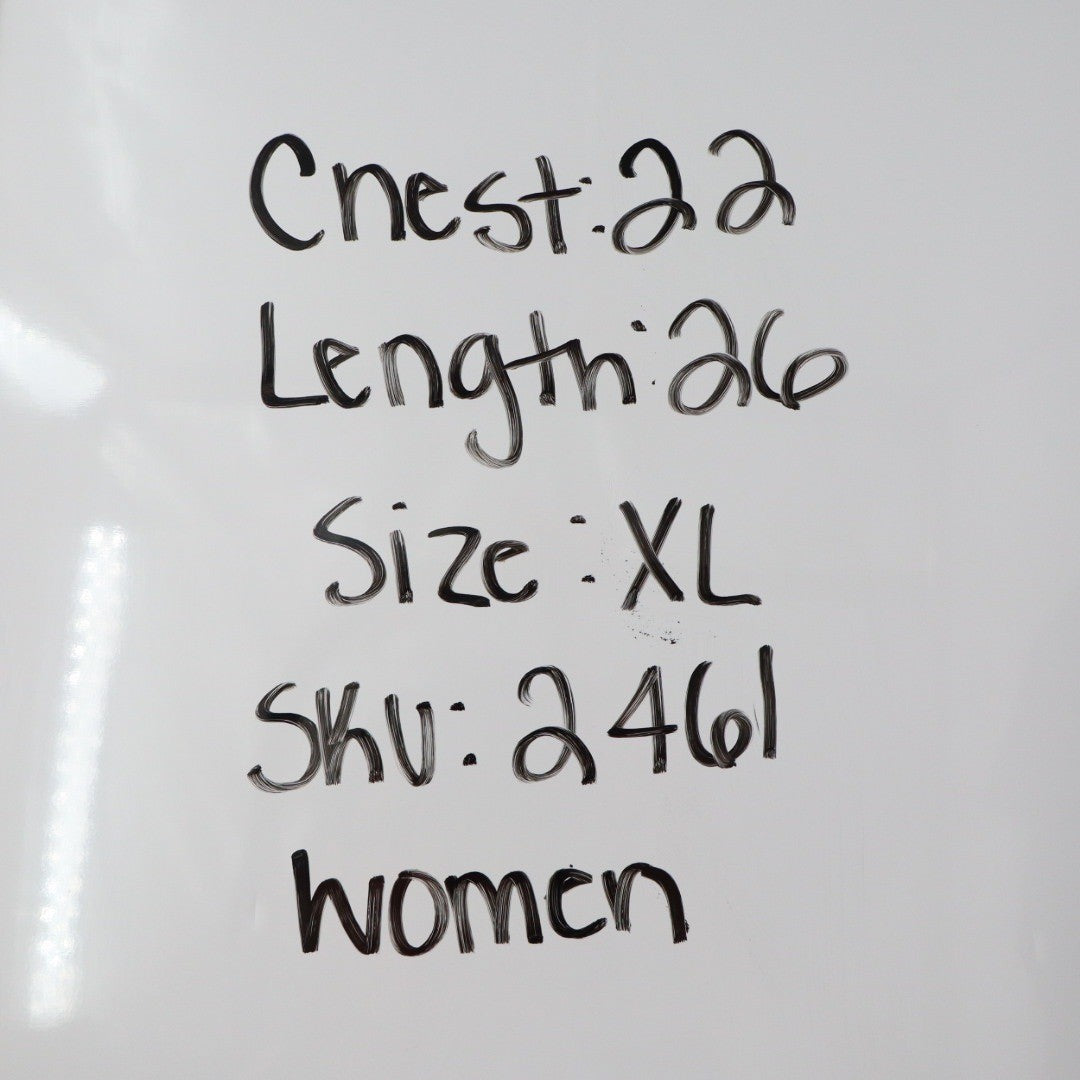 Chest: 22
Length: 26
Size: XL
SKU: 2461
Women